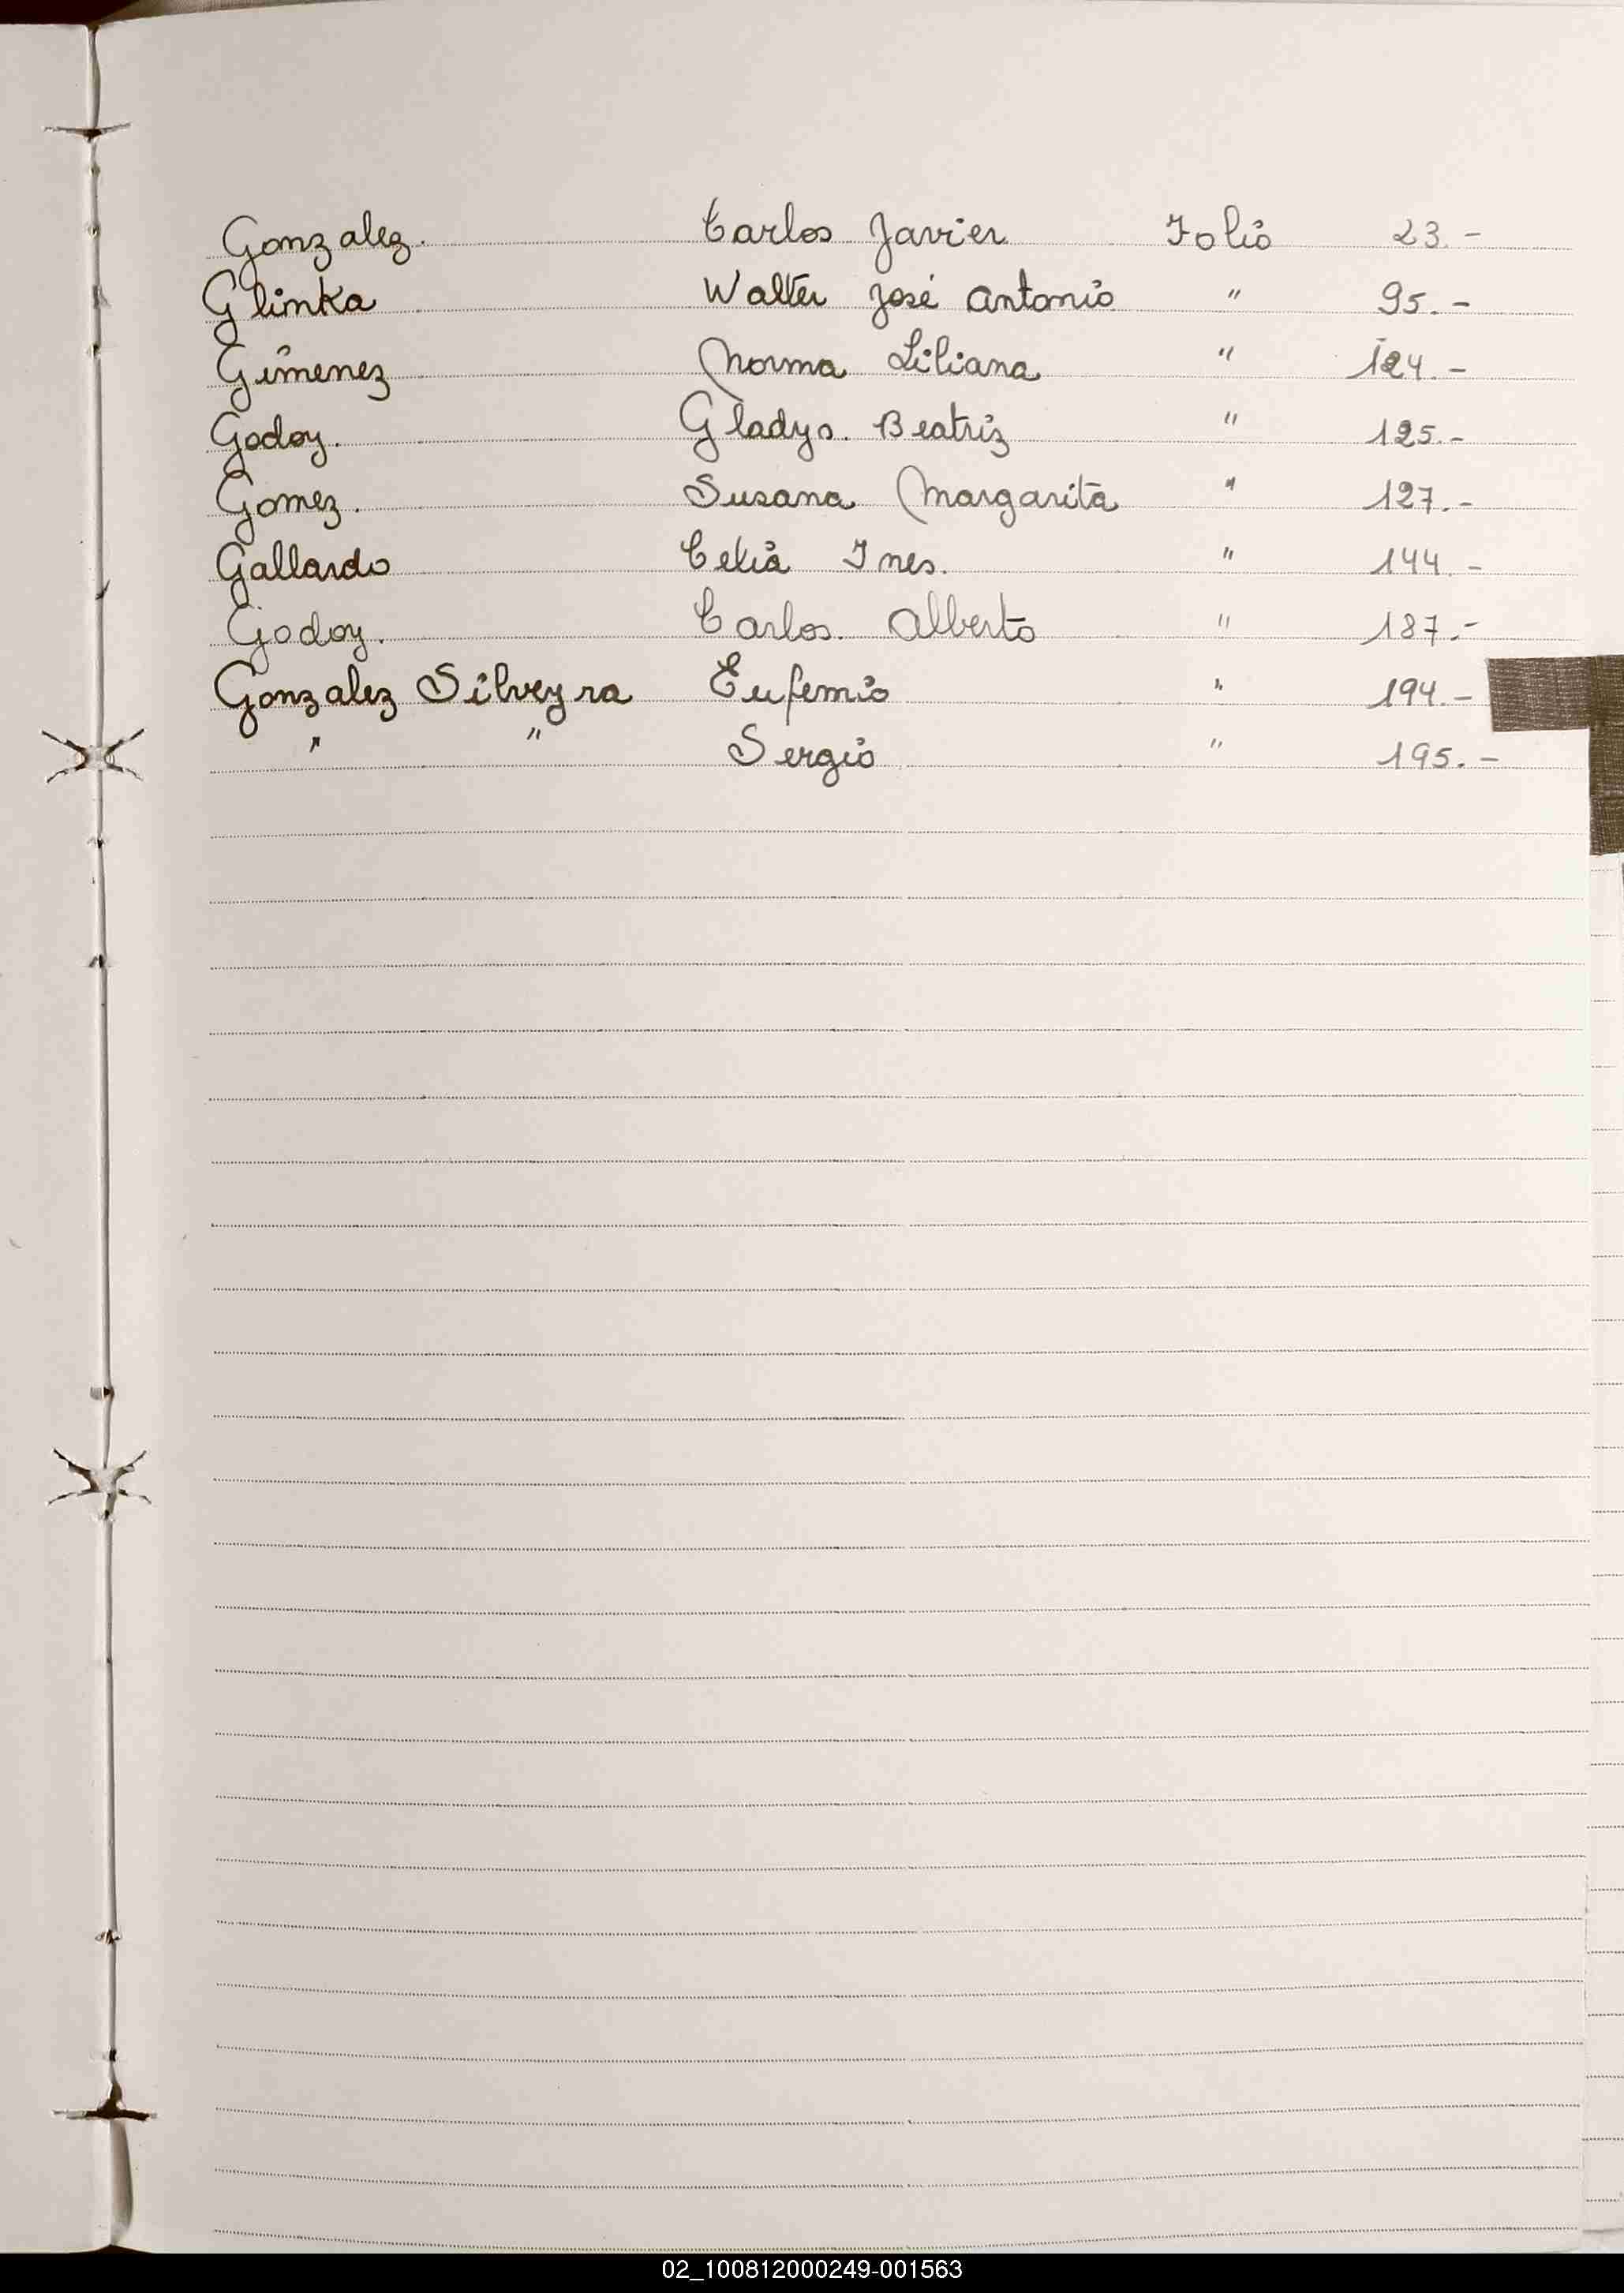 Gonzalez. Carlos Javier Folio 23.-
Glinka Walter José Antonio " 95.-
Gimenez Norma Liliana " 124.-
Godoy. Gladys. Beatriz " 125.-
Gomez. Susana Margarita " 127.-
Gallardo Celia Ines. " 144.-
Godoy. Carlos. Alberto " 187.-
Gonzalez Silveyra Eufemio " 194.-
" " Sergio " 195.-
02_100812000249-001563